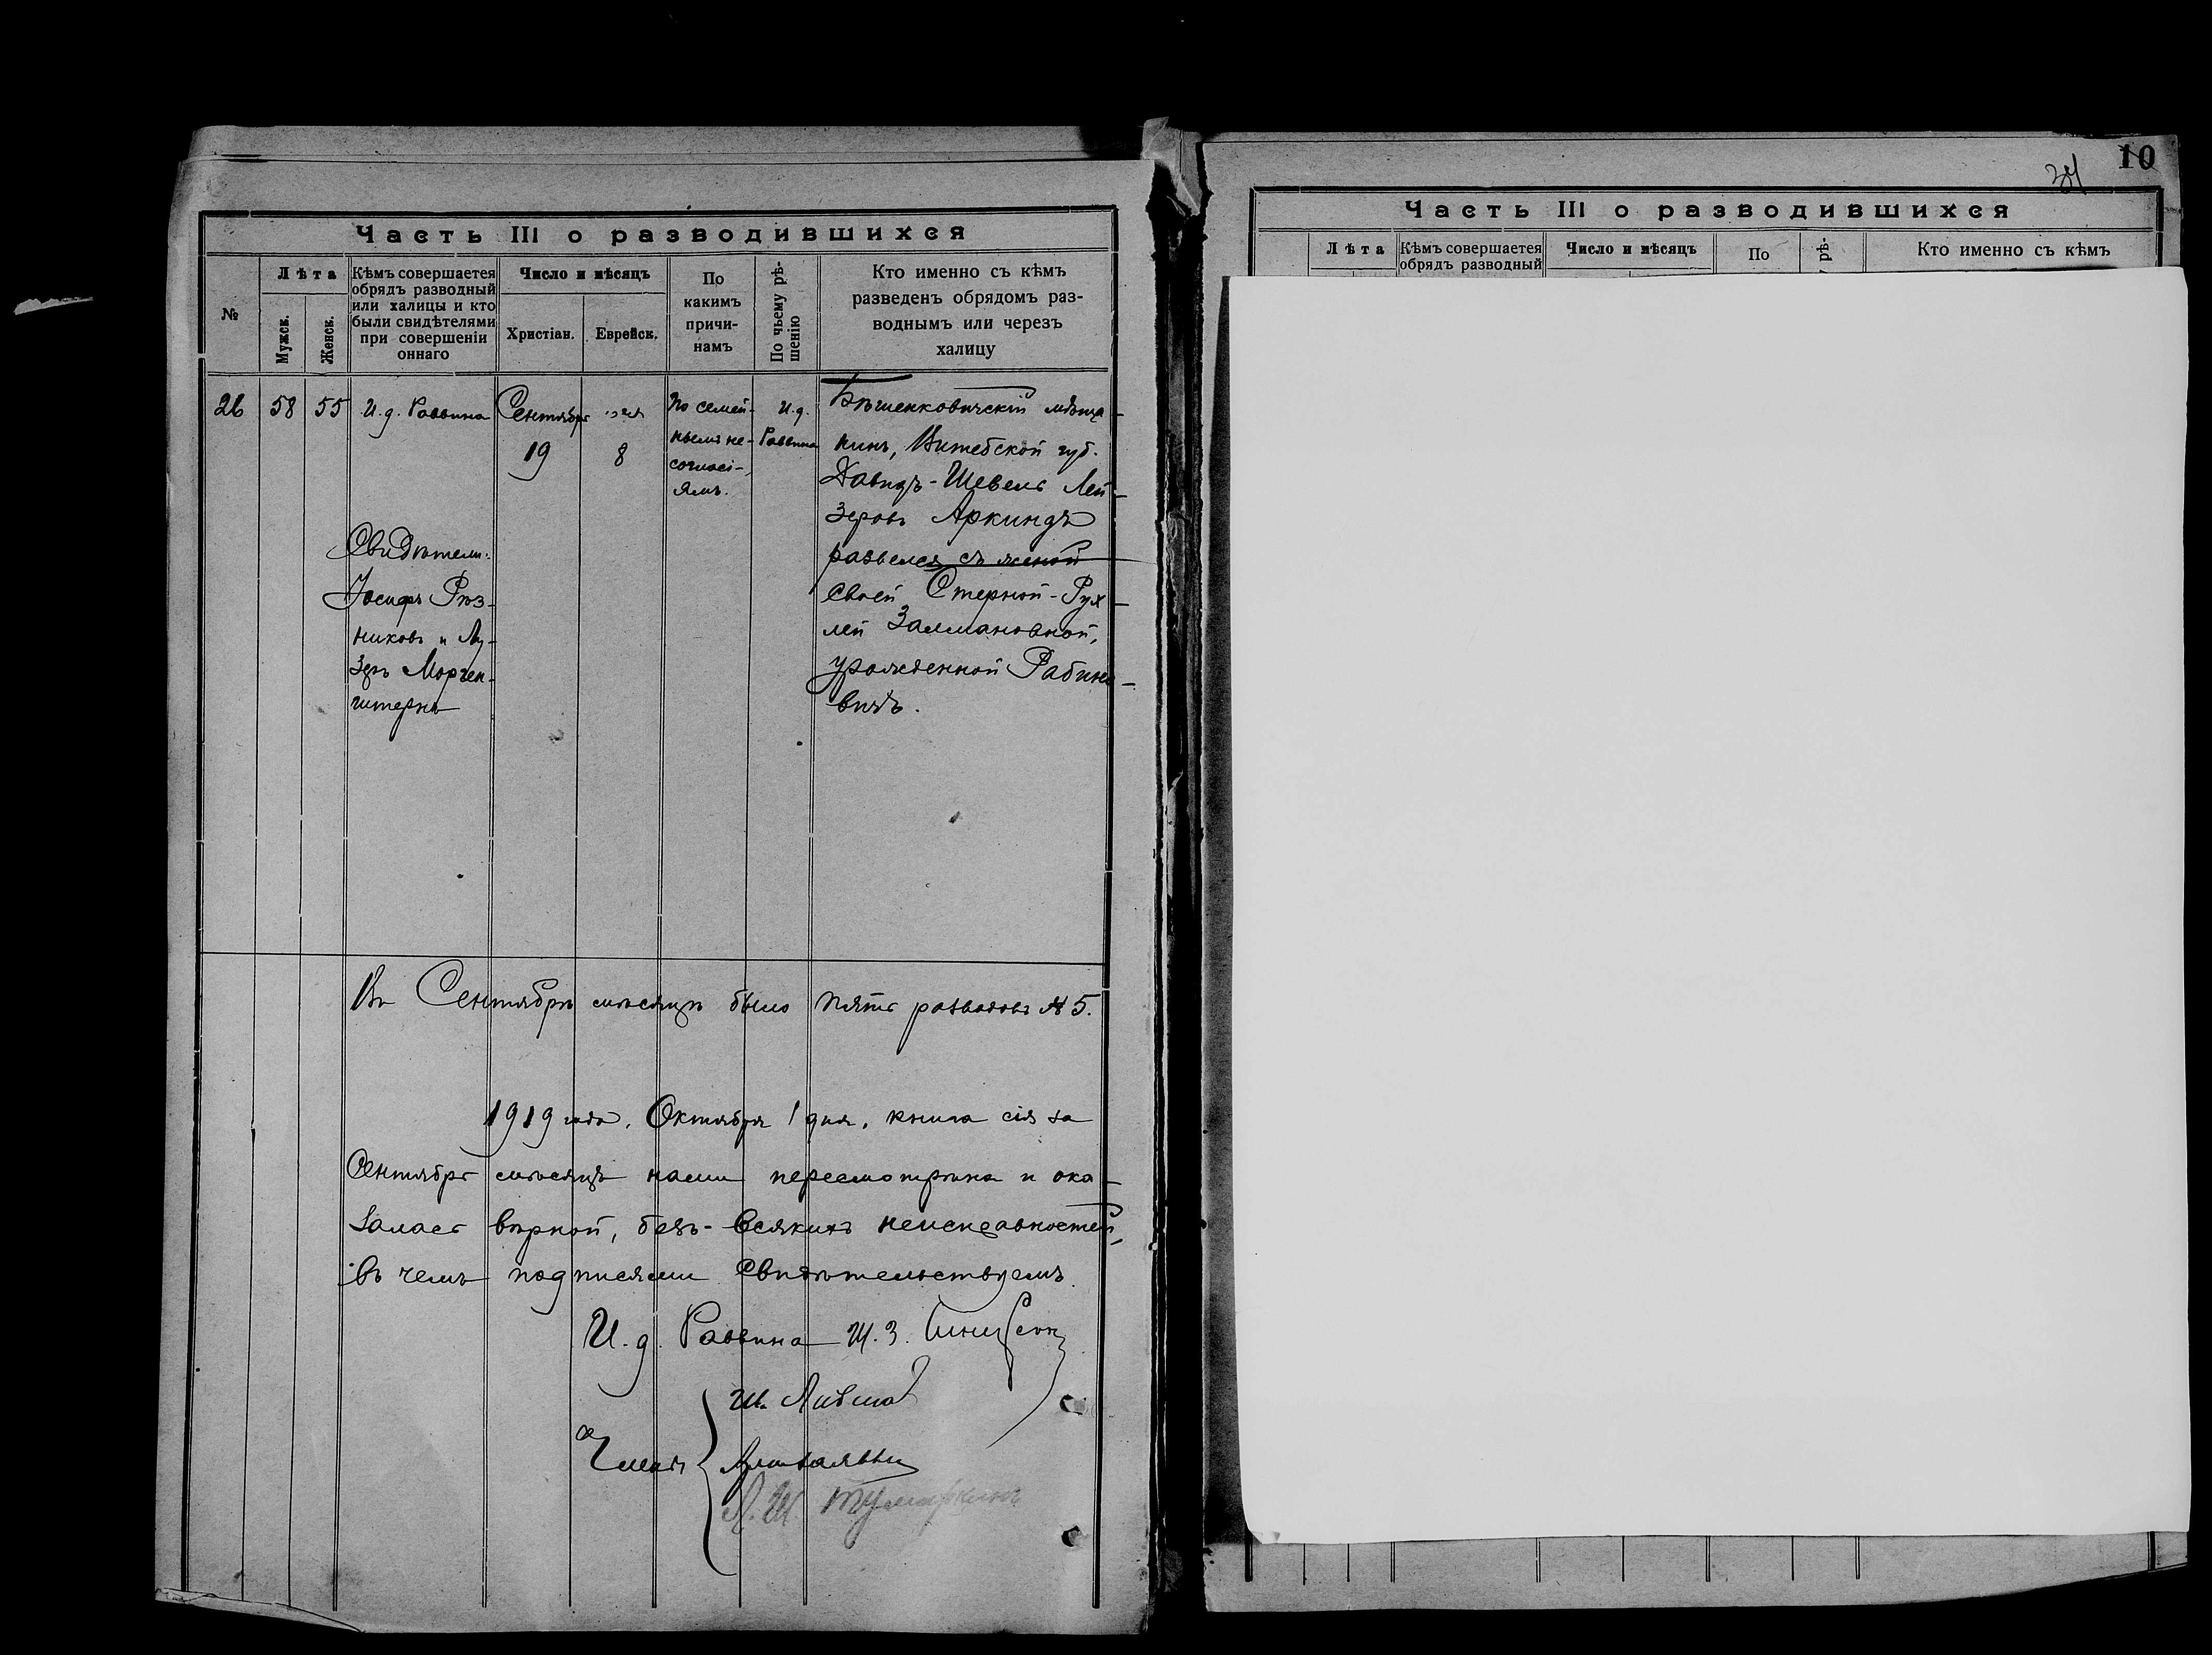 Часть III о разводившихся
№
Лѣта
Мужск.
Женск.
Кѣмъ совершается
обрядъ разводный
или халицы и кто
были свидѣтелями
при совершеніи
оннаго
Число и мѣсяцъ
Христіан.
Еврейск.
По
какимъ
причи-
намъ
По чьему рѣ-
шенію
Кто именно съ кѣмъ
разведенъ обрядомъ раз-
воднымъ или черезъ
халицу
26
58
55
И.д. Раввина
Свидѣтели:
Іосифъ Рѣз-
никовъ и
Морген-
штернъ
Сентябрь
19
8
По семей-
нымъ не-
согласі-
ямъ.
И.д.
Раввина
Бѣшенковичскій мѣща-
нинъ, Витебской губ.
Давидъ-Шевель Лей-
зеровъ Аркиндъ
развелся съ женой
своей Стерной-Рух-
лей Залмановной,
урожденной Рабино-
вичъ.
Въ Сентябрѣ мѣсяцѣ было пять разводовъ № 5.
1919 года, Октября 1 дня, книга сія за
Сентябрь мѣсяцъ нами пересмотрѣна и ока-
залась вѣрной, безъ-всякихъ неисправностей,
въ чемъ подписями свидѣтельствуемъ.
И.д. Раввина Ш.З.
Ш.
Л.Ш. Тумаркинъ
10
Часть III о разводившихся
Лѣта
Кѣмъ совершается
обрядъ разводный
Число и мѣсяцъ
По
рѣ-
Кто именно съ кѣмъ